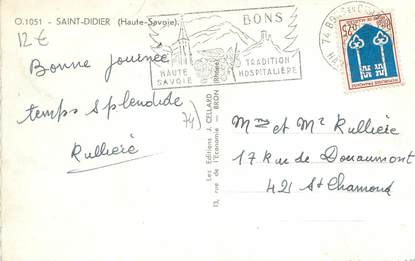 O.1051 - SAINT-DIDIER (Haute-Savoie).
12 €
Bonne journée
temps splendide
Rullière
74)
BONS
HAUTE
SAVOIE
TRADITION
HOSPITALIÈRE
Les Editions J. CELLARD
13, rue de l'Economie - BRON (Rhône)
Mme et Mr Rullière
17 Rue de Douaumont
421 St Chamond